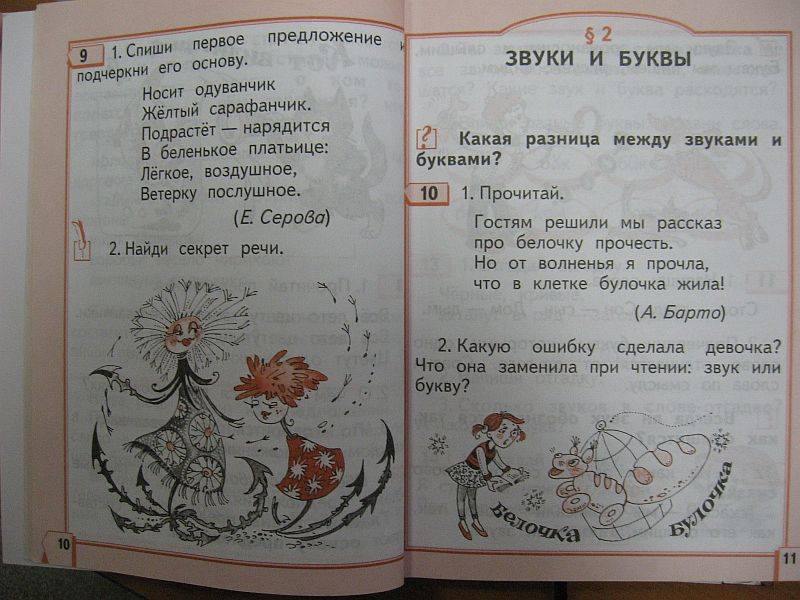 9 1. Спиши первое предложение и
подчеркни его основу.
Носит одуванчик
Жёлтый сарафанчик.
Подрастёт — нарядится
В беленькое платьице:
Лёгкое, воздушное,
Ветерку послушное.
(Е. Серова)
2. Найди секрет речи.
10
§ 2
ЗВУКИ И БУКВЫ
? Какая разница между звуками и
буквами?
10 1. Прочитай.
Гостям решили мы рассказ
про белочку прочесть.
Но от волненья я прочла,
что в клетке булочка жила!
(А. Барто)
2. Какую ошибку сделала девочка?
Что она заменила при чтении: звук или
букву?
белочка
булочка
11